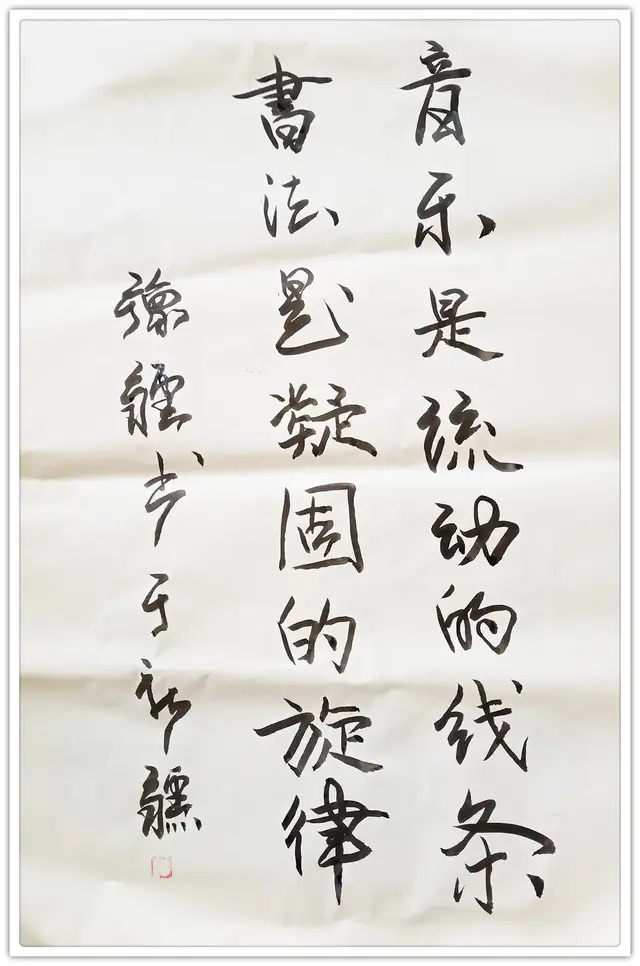 音乐是流动的线条
書法是凝固的旋律
疆书于新疆